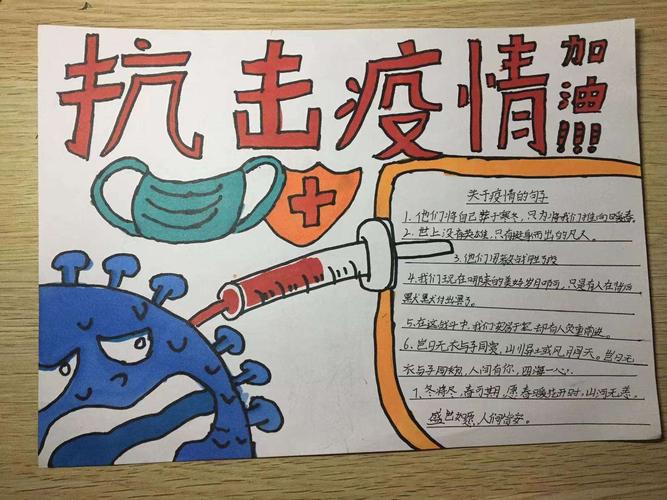 抗击疫情
加油!!!
关于疫情的句子
1、他们将自己葬于寒冬,只为将我们推向回暖春。
2、世上没有英雄,只有挺身而出的凡人。
3、他们用
4、我们现在哪来的美好岁月 ,只是有人在背后
默默付出罢了。
5、在这战斗中,我们 却有人负重前进。
6、岂曰无衣与子同裳,山川异域风月同天。岂曰无
衣与子同袍,人间有你,四海一心。
7、冬将尽,春可期,愿春暖花开时,山河无恙,
盛世如愿,人们皆安。